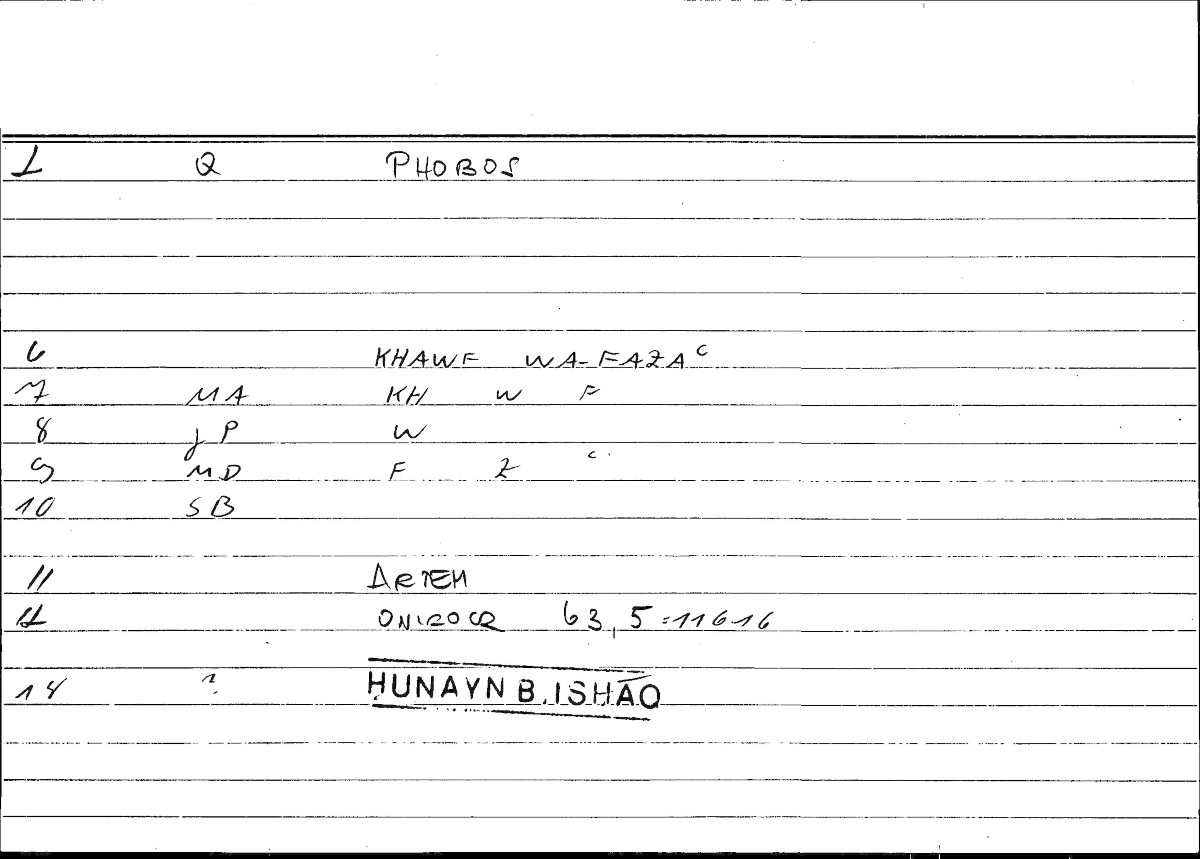 1 Q PHOBOS
6 KHAWF WA-FAZAᶜ
7 MA KH W F
8 jP W
9 MD F Z ᶜ
10 SB
11 ARTEM
12 ONIROCR 63,5=116-16
14 ? HUNAYN B.ISḤĀQ